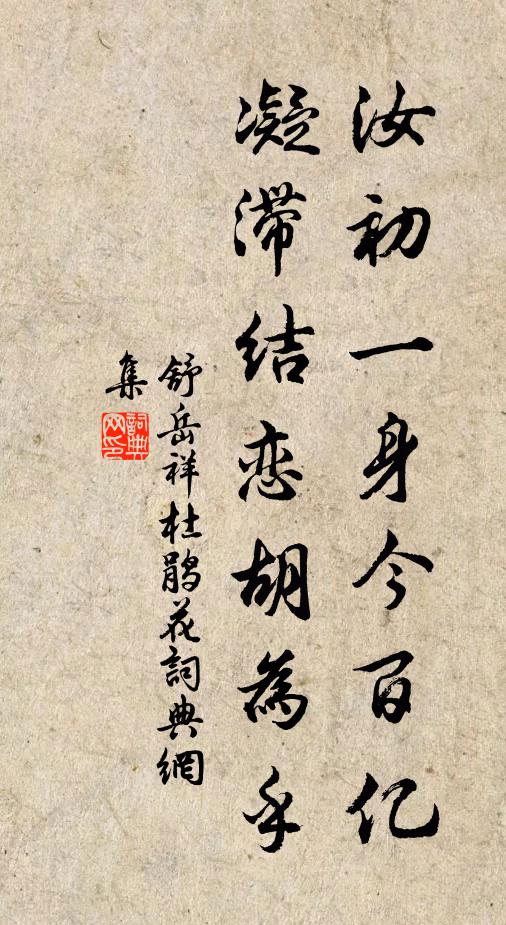 汝初一身今百亿
凝滞结恋胡為乎
舒岳祥杜鹃花詞典網
集
詞典网印